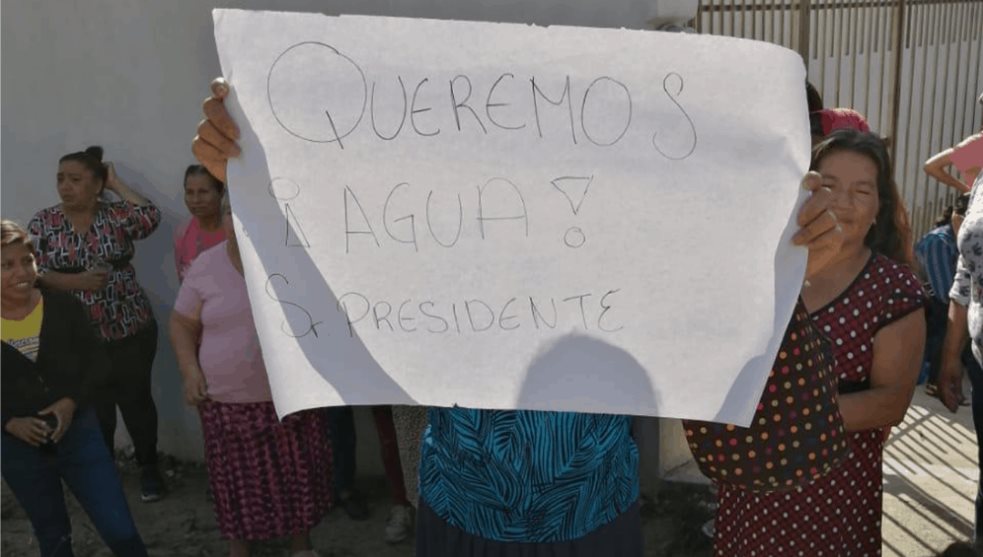 QUEREMOS
¡AGUA!
Sr PRESIDENTE